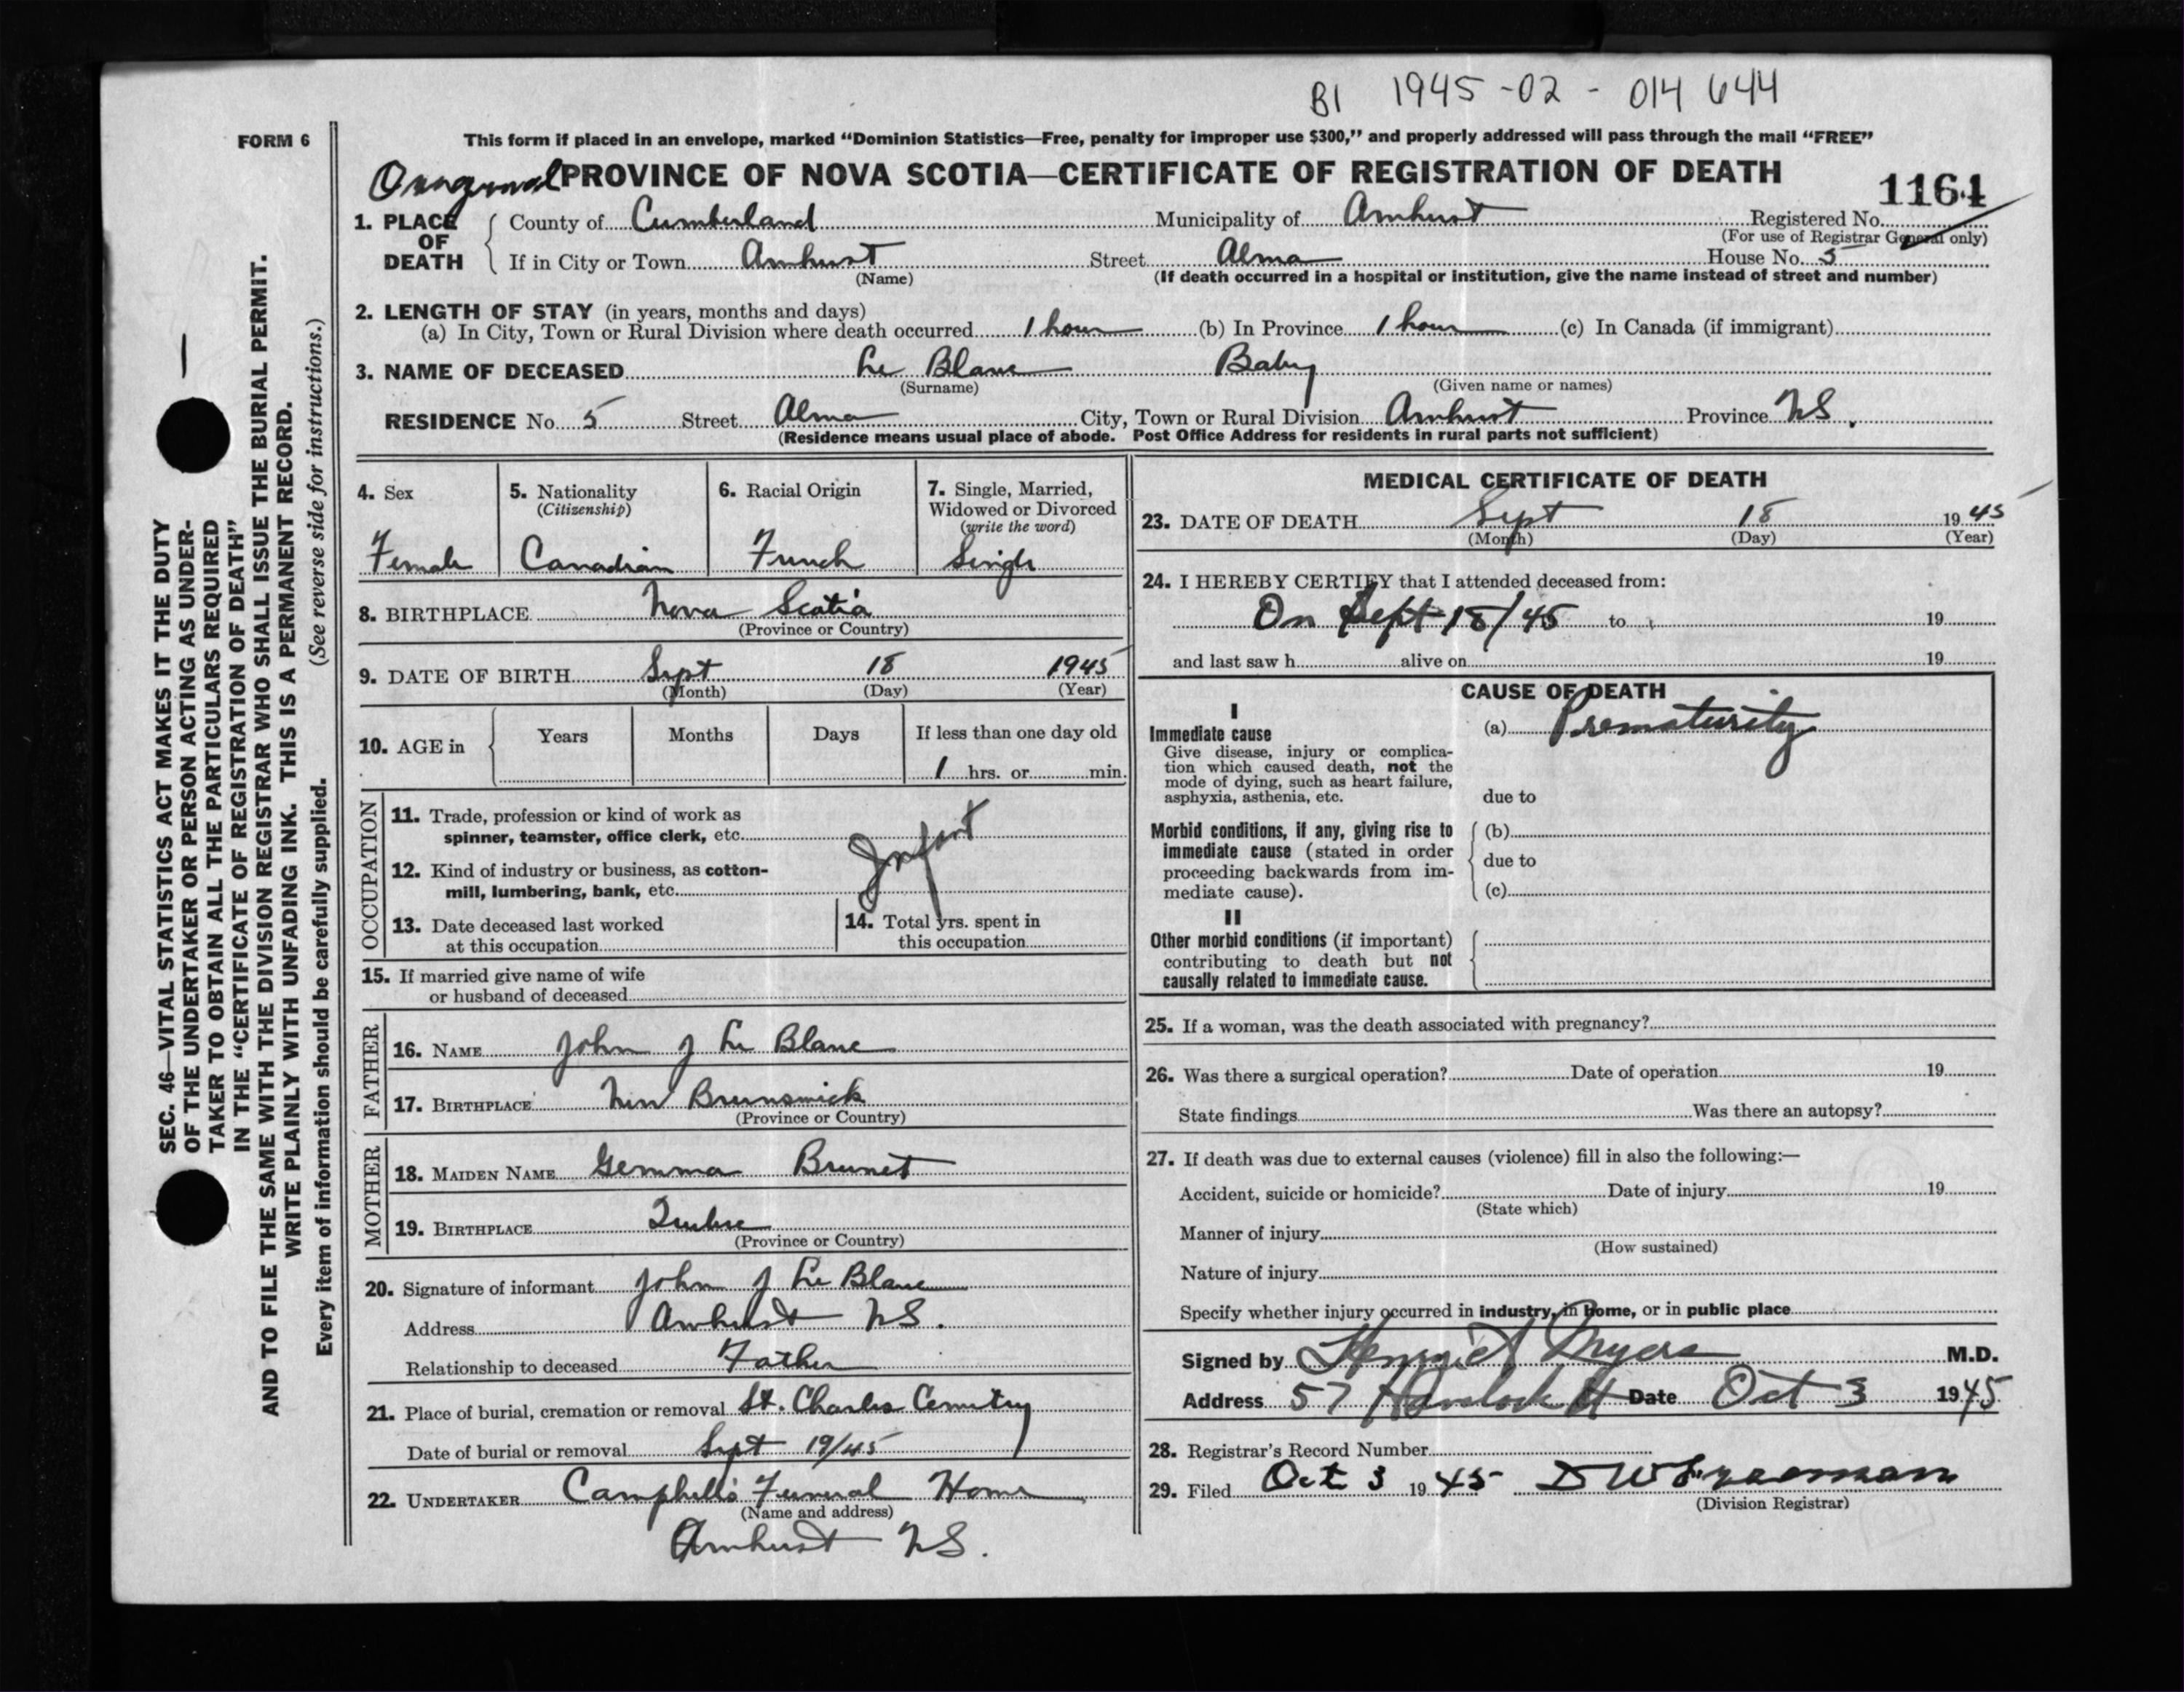 B1 1945-02-014644
FORM 6
This form if placed in an envelope, marked “Dominion Statistics—Free, penalty for improper use $300,” and properly addressed will pass through the mail “FREE”
Original PROVINCE OF NOVA SCOTIA—CERTIFICATE OF REGISTRATION OF DEATH
1164
1. PLACE OF DEATH County of Cumberland Municipality of Amherst Registered No.
(For use of Registrar General only)
If in City or Town Amherst Street Alma House No. 5
(Name) (If death occurred in a hospital or institution, give the name instead of street and number)
2. LENGTH OF STAY (in years, months and days)
(a) In City, Town or Rural Division where death occurred 1 hour (b) In Province 1 hour (c) In Canada (if immigrant)
3. NAME OF DECEASED Le Blanc Baby
(Surname) (Given name or names)
RESIDENCE No. 5 Street Alma City, Town or Rural Division Amherst Province NS.
(Residence means usual place of abode. Post Office Address for residents in rural parts not sufficient)
4. Sex 5. Nationality (Citizenship) 6. Racial Origin 7. Single, Married, Widowed or Divorced (write the word)
Female Canadian French Single
8. BIRTHPLACE Nova Scotia
(Province or Country)
9. DATE OF BIRTH Sept 18 1945
(Month) (Day) (Year)
10. AGE in Years Months Days If less than one day old
1 hrs. or min.
OCCUPATION
11. Trade, profession or kind of work as
spinner, teamster, office clerk, etc.
Infant
12. Kind of industry or business, as cotton-
mill, lumbering, bank, etc.
13. Date deceased last worked
at this occupation
14. Total yrs. spent in
this occupation
15. If married give name of wife
or husband of deceased
FATHER
16. NAME John J Le Blanc
17. BIRTHPLACE New Brunswick
(Province or Country)
MOTHER
18. MAIDEN NAME Gemma Brunet
19. BIRTHPLACE Quebec
(Province or Country)
20. Signature of informant John J Le Blanc
Address Amherst NS.
Relationship to deceased Father
21. Place of burial, cremation or removal St. Charles Cemetry
Date of burial or removal Sept 19/45
22. UNDERTAKER Campbell's Funeral Home
(Name and address)
Amherst NS.
MEDICAL CERTIFICATE OF DEATH
23. DATE OF DEATH Sept 18 1945
(Month) (Day) (Year)
24. I HEREBY CERTIFY that I attended deceased from:
On Sept 18/45 to 19
and last saw h alive on 19
CAUSE OF DEATH
I
Immediate cause
(a) Prematurity
Give disease, injury or complica-
tion which caused death, not the
mode of dying, such as heart failure,
asphyxia, asthenia, etc.
due to
Morbid conditions, if any, giving rise to
immediate cause (stated in order
proceeding backwards from im-
mediate cause).
(b)
due to
(c)
II
Other morbid conditions (if important)
contributing to death but not
causally related to immediate cause.
25. If a woman, was the death associated with pregnancy?
26. Was there a surgical operation? Date of operation 19
State findings Was there an autopsy?
27. If death was due to external causes (violence) fill in also the following:—
Accident, suicide or homicide? Date of injury 19
(State which)
Manner of injury
(How sustained)
Nature of injury
Specify whether injury occurred in industry, in home, or in public place
Signed by Myers M.D.
Address 57 Havelock St Date Oct 3 1945
28. Registrar's Record Number
29. Filed Oct 3 1945 D W
(Division Registrar)
SEC. 46—VITAL STATISTICS ACT MAKES IT THE DUTY
OF THE UNDERTAKER OR PERSON ACTING AS UNDER-
TAKER TO OBTAIN ALL THE PARTICULARS REQUIRED
IN THE “CERTIFICATE OF REGISTRATION OF DEATH”
AND TO FILE THE SAME WITH THE DIVISION REGISTRAR WHO SHALL ISSUE THE BURIAL PERMIT.
WRITE PLAINLY WITH UNFADING INK. THIS IS A PERMANENT RECORD.
Every item of information should be carefully supplied. (See reverse side for instructions.)